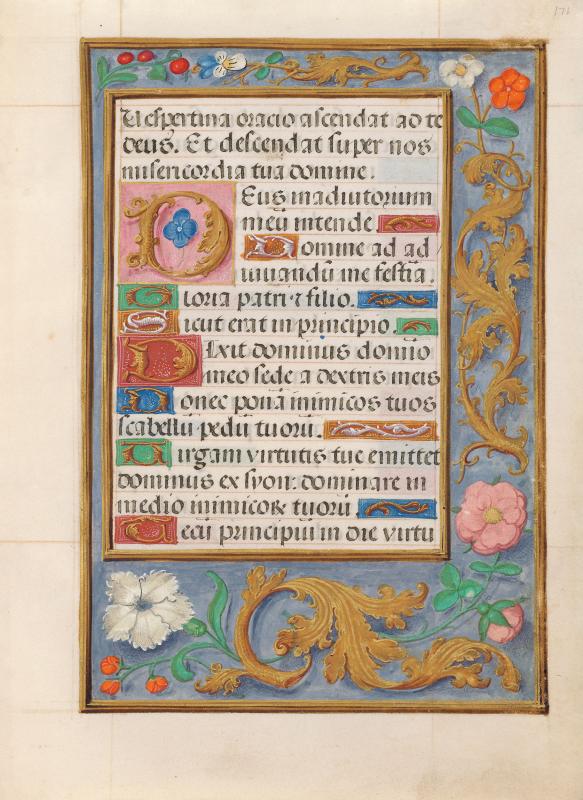 171
Uespertina oracio ascendat ad te
deus. Et descendat super nos
misericordia tua domine.
Deus in adiutorium
meū intende.
Domine ad ad
iuuandū me festīa.
Gloria patri ⁊ filio.
Sicut erat in principio.
Dixit dominus domīo
meo sede a dextris meis
Donec ponā inimicos tuos
scabellū pedū tuorū.
Uirgam virtutis tue emittet
dominus ex syon: dominare in
medio inimicoꝝ tuorū
Tecū principiū in die virtu